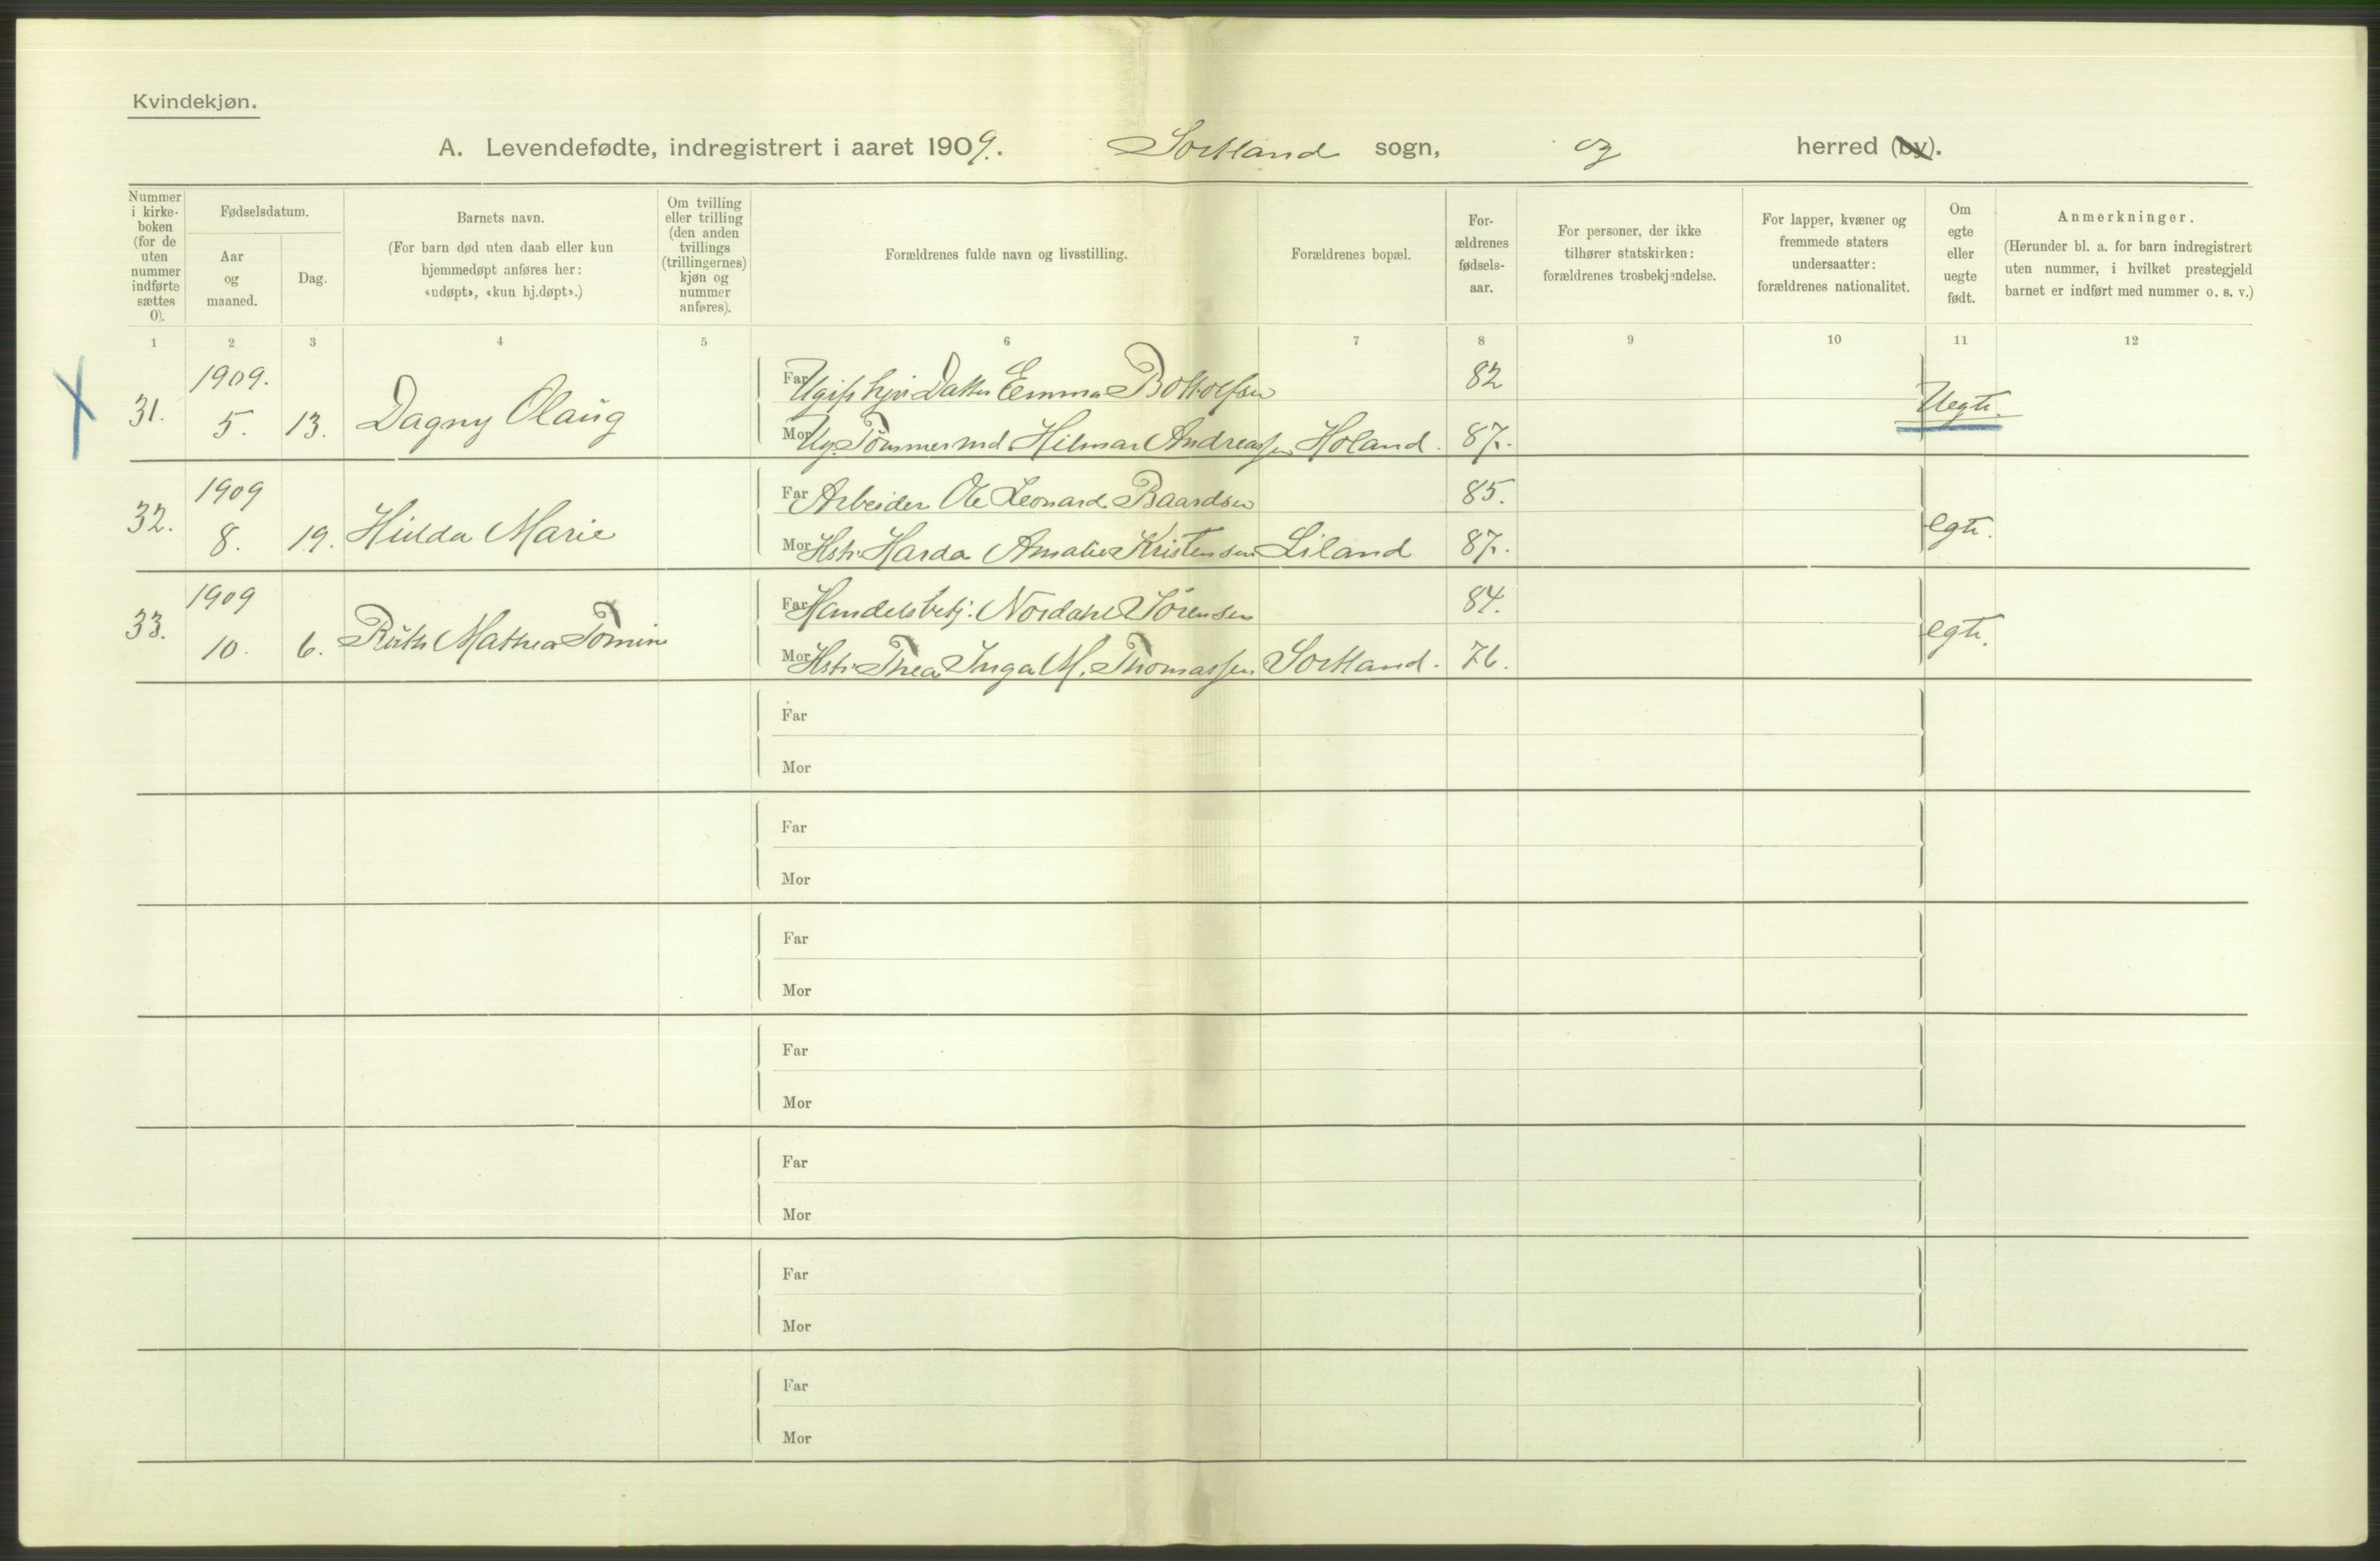 Kvindekjøn.
A. Levendefødte, indregistrert i aaret 1909. Sortland sogn, og herred (by).
Nummer i kirke- boken (for de uten nummer indførte sættes 0).
Fødselsdatum.
Aar og maaned.
Dag.
Barnets navn.
(For barn død uten daab eller kun hjemmedøpt anføres her: «udøpt», «kun hj.døpt».)
Om tvilling eller trilling (den anden tvillings (trillingernes) kjøn og nummer anføres).
Forældrenes fulde navn og livsstilling.
Forældrenes bopæl.
For- ældrenes fødsels- aar.
For personer, der ikke tilhører statskirken: forældrenes trosbekjendelse.
For lapper, kvæner og fremmede staters undersaatter: forældrenes nationalitet.
Om egte eller uegte født.
Anmerkninger.
(Herunder bl. a. for barn indregistrert uten nummer, i hvilket prestegjeld barnet er indført med nummer o. s. v.)
1 2 3 4 5 6 7 8 9 10 11 12
31. 1909. 5. 13. Dagny Olaug
Far Ugift Datter Emma Bottolfsen 82
Mor Ug. Tømmermd Hilmar Andreassen Holand. 87.
Uegte.
32. 1909 8. 19. Hilda Marie
Far Arbeider Ole Leonard Baardsen 85.
Mor Hstr. Harda Amalie Kristensen Liland 87.
egte.
33. 1909 10. 6. Ruth Mathea Tomine
Far Handelsbetj. Nordahl Sørensen 84.
Mor Hstr. Thea Inga M. Thomassen Sortland. 76.
egte.
Far
Mor
Far
Mor
Far
Mor
Far
Mor
Far
Mor
Far
Mor
Far
Mor